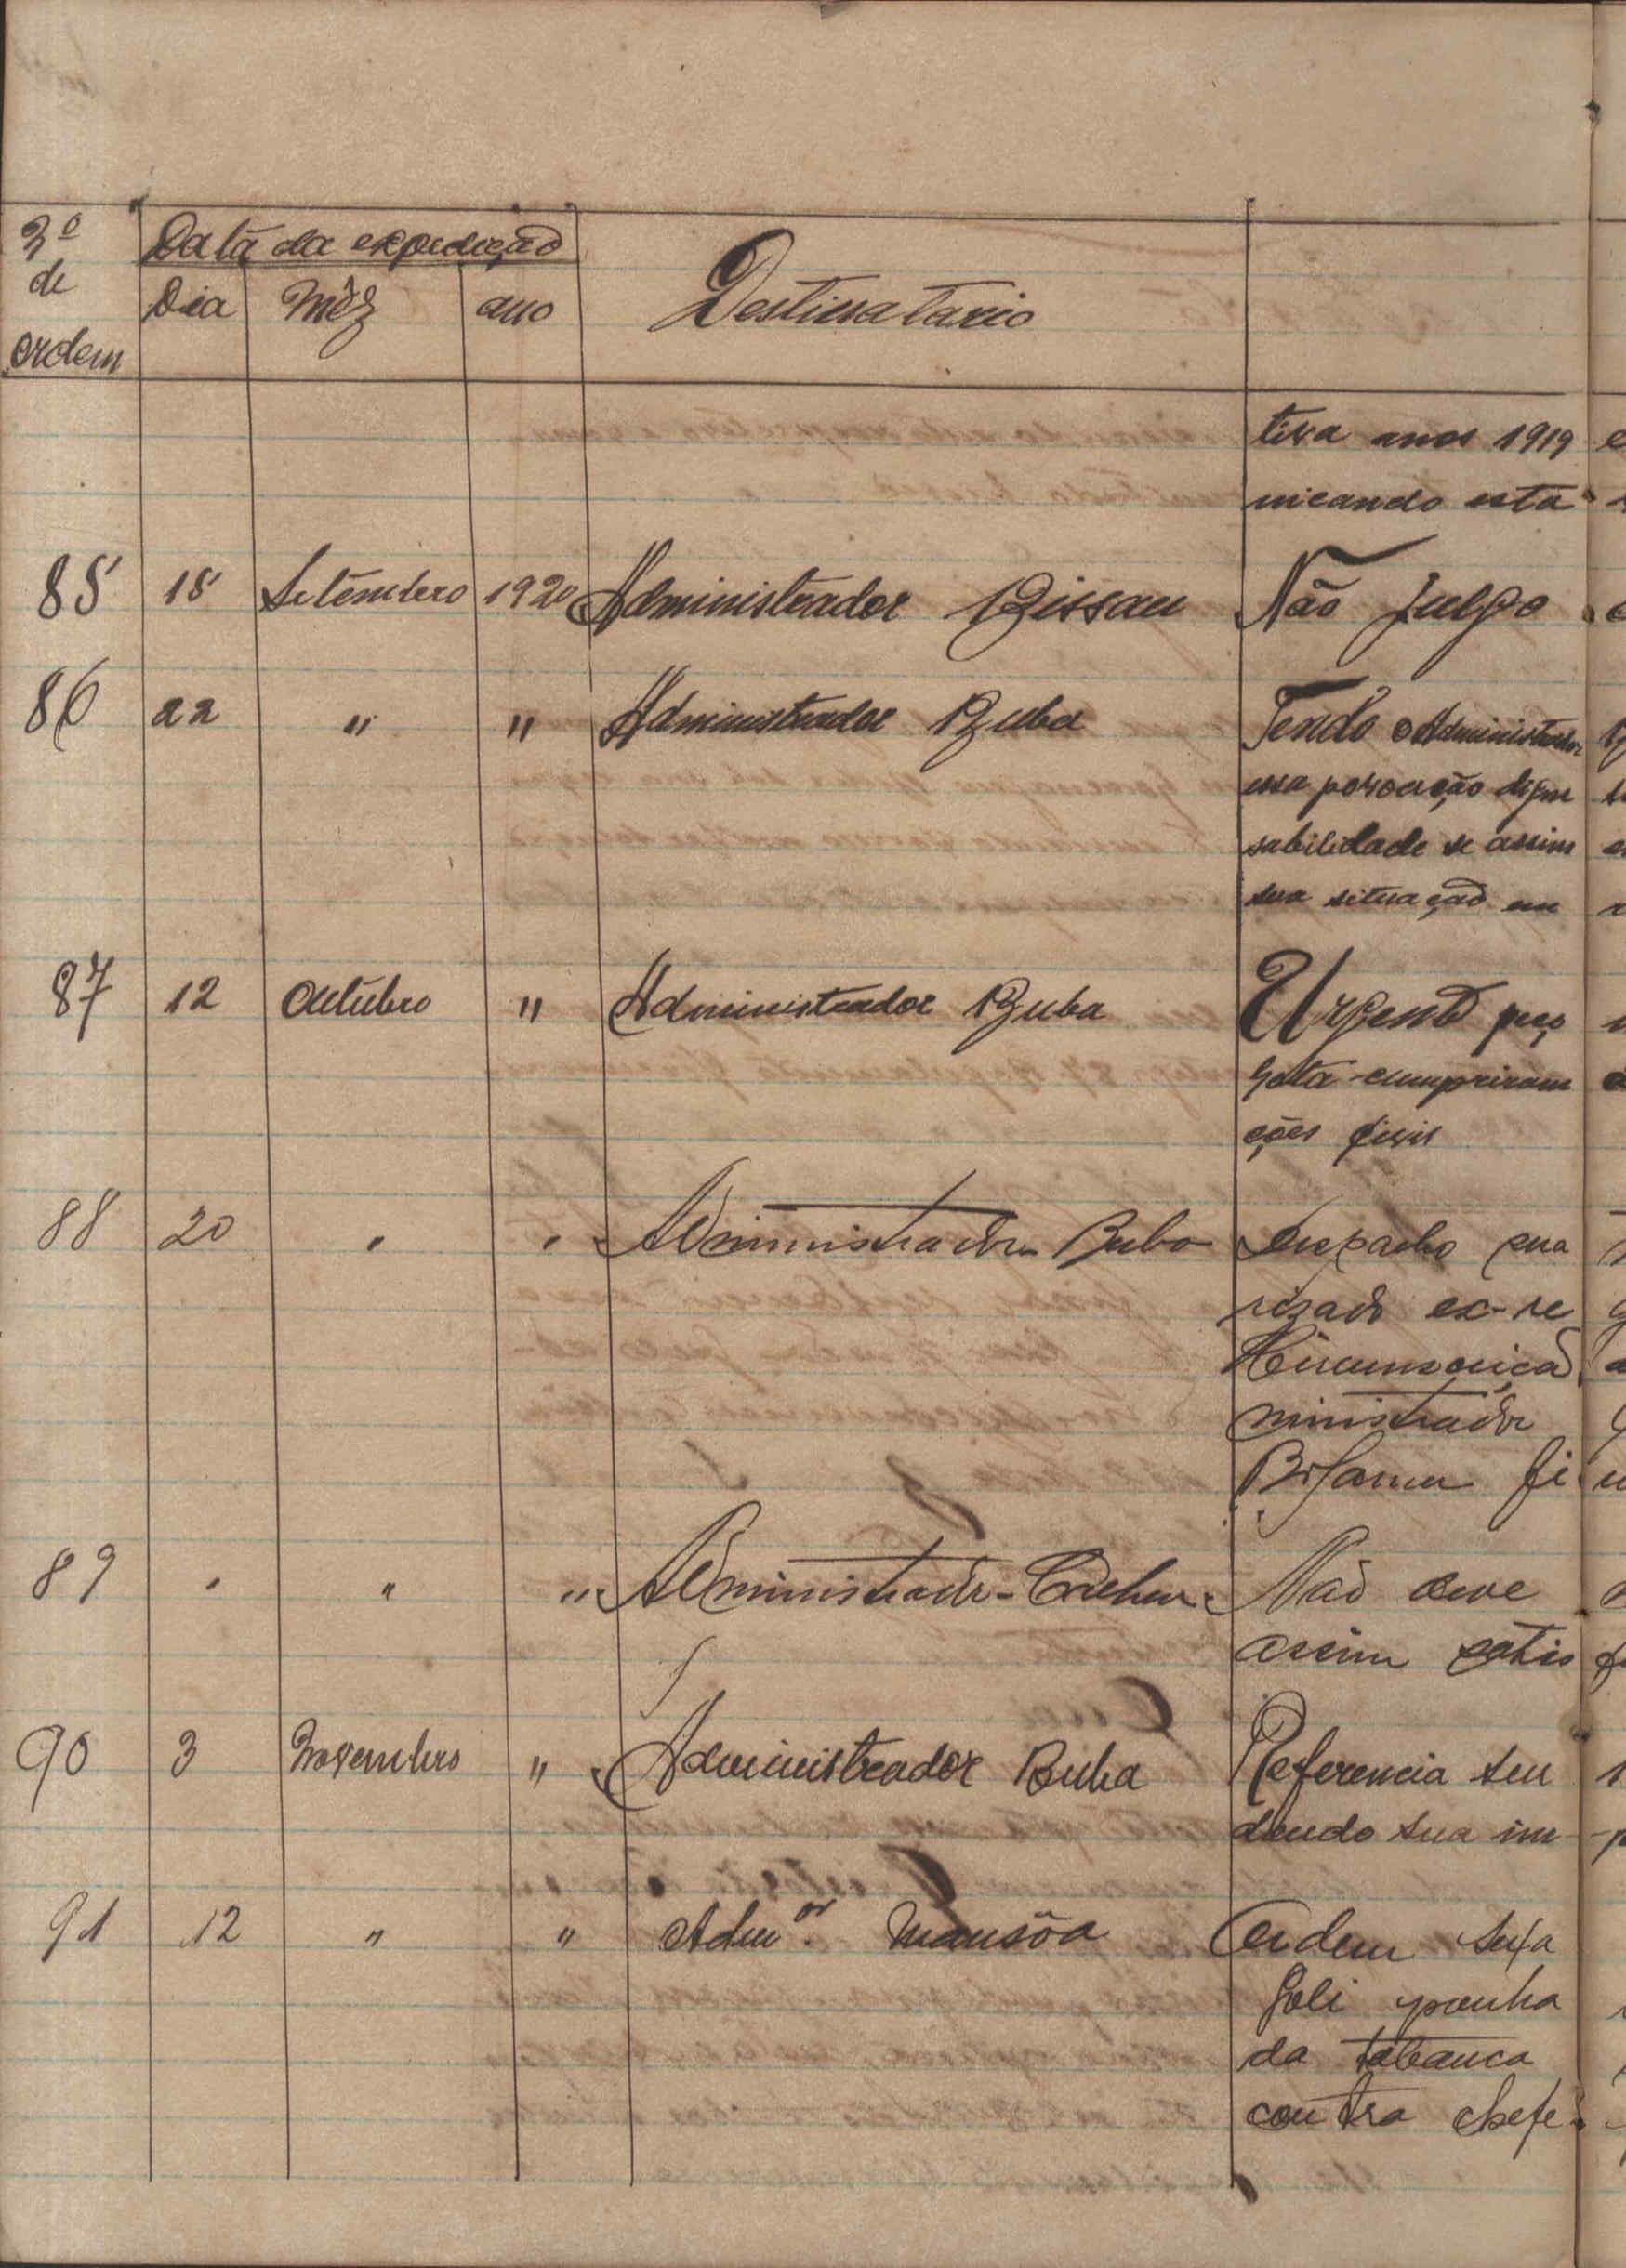 Nº Data da expedição
de Dia Mêz ano Destinatario
ordem
tiva anos 1919 e
nicando esta
85 18 Setembro 1920 Administrador Bissau Não julgo
86 22 " " Administrador Buba Tendo o Administrador
essa povoação
sabilidade se assim
sua situação em
87 12 Outubro " Administrador Buba Urgente peço
cumpriram
ções
88 20 " " Administrador Buba despacho
ex-re
Circunscrição
ministrador
fi
89 " " " Administrador Não deve
assim satis
90 3 Novembro " Administrador Buba Referencia seu
dendo sua im
91 12 " " Admor. Mansôa Ordem seja
da tabanca
contra chefe